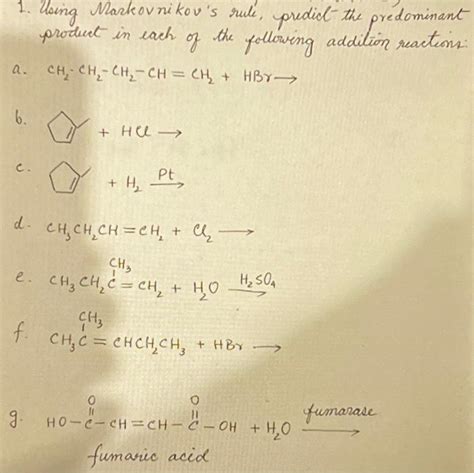 1. Using Markovnikov's rule, predict the predominant
product in each of the following addition reactions:
a. CH₂-CH₂-CH₂-CH=CH₂ + HBr→
b. + HCl →
c. + H₂ Pt→
d. CH₃CH₂CH=CH₂ + Cl₂ →
CH₃
e. CH₃CH₂C=CH₂ + H₂O H₂SO₄→
CH₃
f. CH₃C=CHCH₂CH₃ + HBr →
O O
g. HO-C-CH=CH-C-OH + H₂O fumarase→
fumaric acid